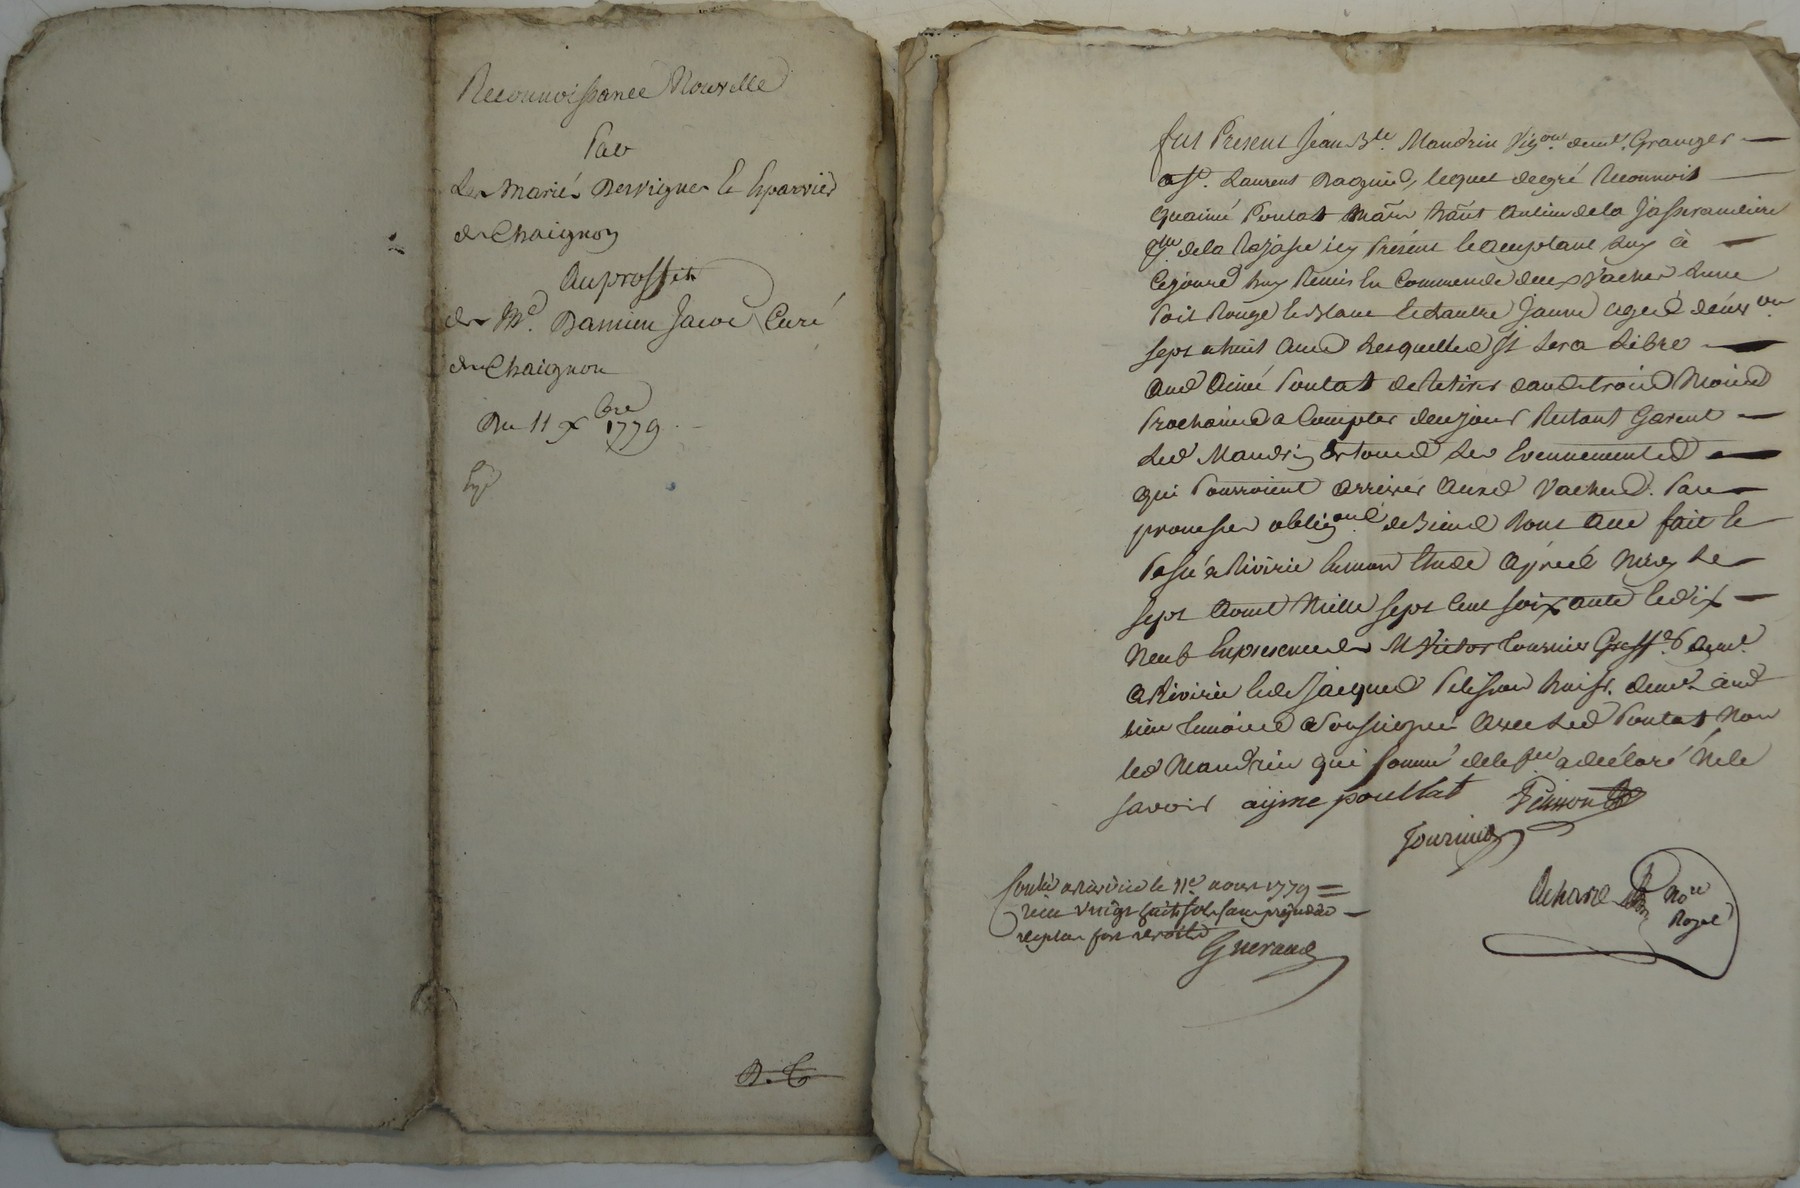 Reconnoissance Nouvelle
Par
Les Mariés Desvignes et Eparvier
de Chaignon
Au proffit
de Mre. Damien Jacod Curé
de Chaignon
Du 11 Xbre 1779
Expé
D. C
fut Present Jean Bte. Mandrin Vigon. demt. Granger
a St. Laurent Dagnid, lequel degré Reconnoit
quaimé Poulat Mar habt au lieu de la Jasserandiere
de la Rajasse icy Present et acceptant luy à
Cejourd'huy Remis En Commende deux Vaches Lune
Poil Rouge et Blanc et Lautre Jaune ageés denvon
sept a huit Ans Lesquelles Il Sera Libre
Aud Aimé Poulat de Retirer dans trois Mois
Prochains a Compter de ce jour Restant Garent
Led Mandrin de tous Les Evennements
qui Pourroient arriver Auxd Vaches. Par
promesses obligons de Biens Dont Acte fait et
Passé a Rivirie En mon Etude Aprés Midy Le
sept Aoust Mille sept Cent soixante et dix
Neuf En presence de M Victor Tournier Greff. demt.
a Rivirie et de Jacques Pelisson huiss. demt aud
lieu temoins Soussignés Avec Led Poulat Non
led Mandrin qui sommé de le fre a déclaré Ne le
savoir aijme poullat Pelisson
Tournier
Contlé a Rivirie le 11e. aoust 1779
Reçu sans prejudice
de plus fort droits
Gueraud
Nore
Royal